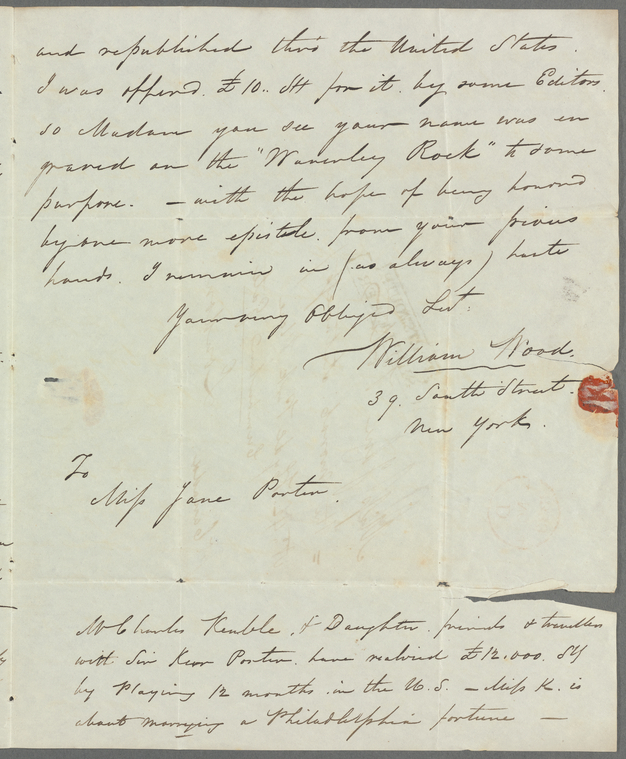 and republished thro the United States.
I was offered £10.. St for it by some Editors.
so Madam you see your name was en
graved on the "Waverley Rock" to some
purpose. — with the hope of being honored
by one more epistle from your
hands. I remain in (as always) haste
Your very Obliged Svt.
William Wood.
39. South Street.
New York.
To
Miss Jane Porter.
Mr Charles Kemble, & Daughter, friends & travellers
with Sir Kerr Porter. have realized £12,000. St
by Playing 12 months in the U.S. — Miss K. is
about marrying a Philadelphia fortune —